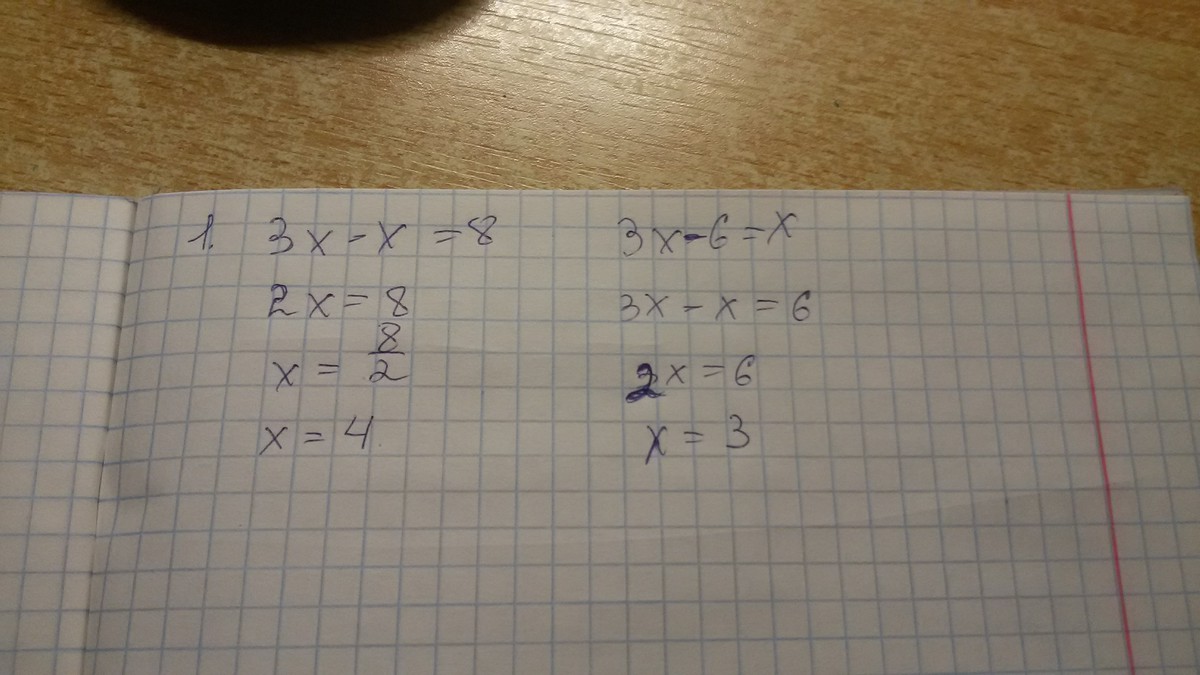 1. 3x - x = 8
2x = 8
x = 8/2
x = 4
3x - 6 = x
3x - x = 6
2x = 6
x = 3